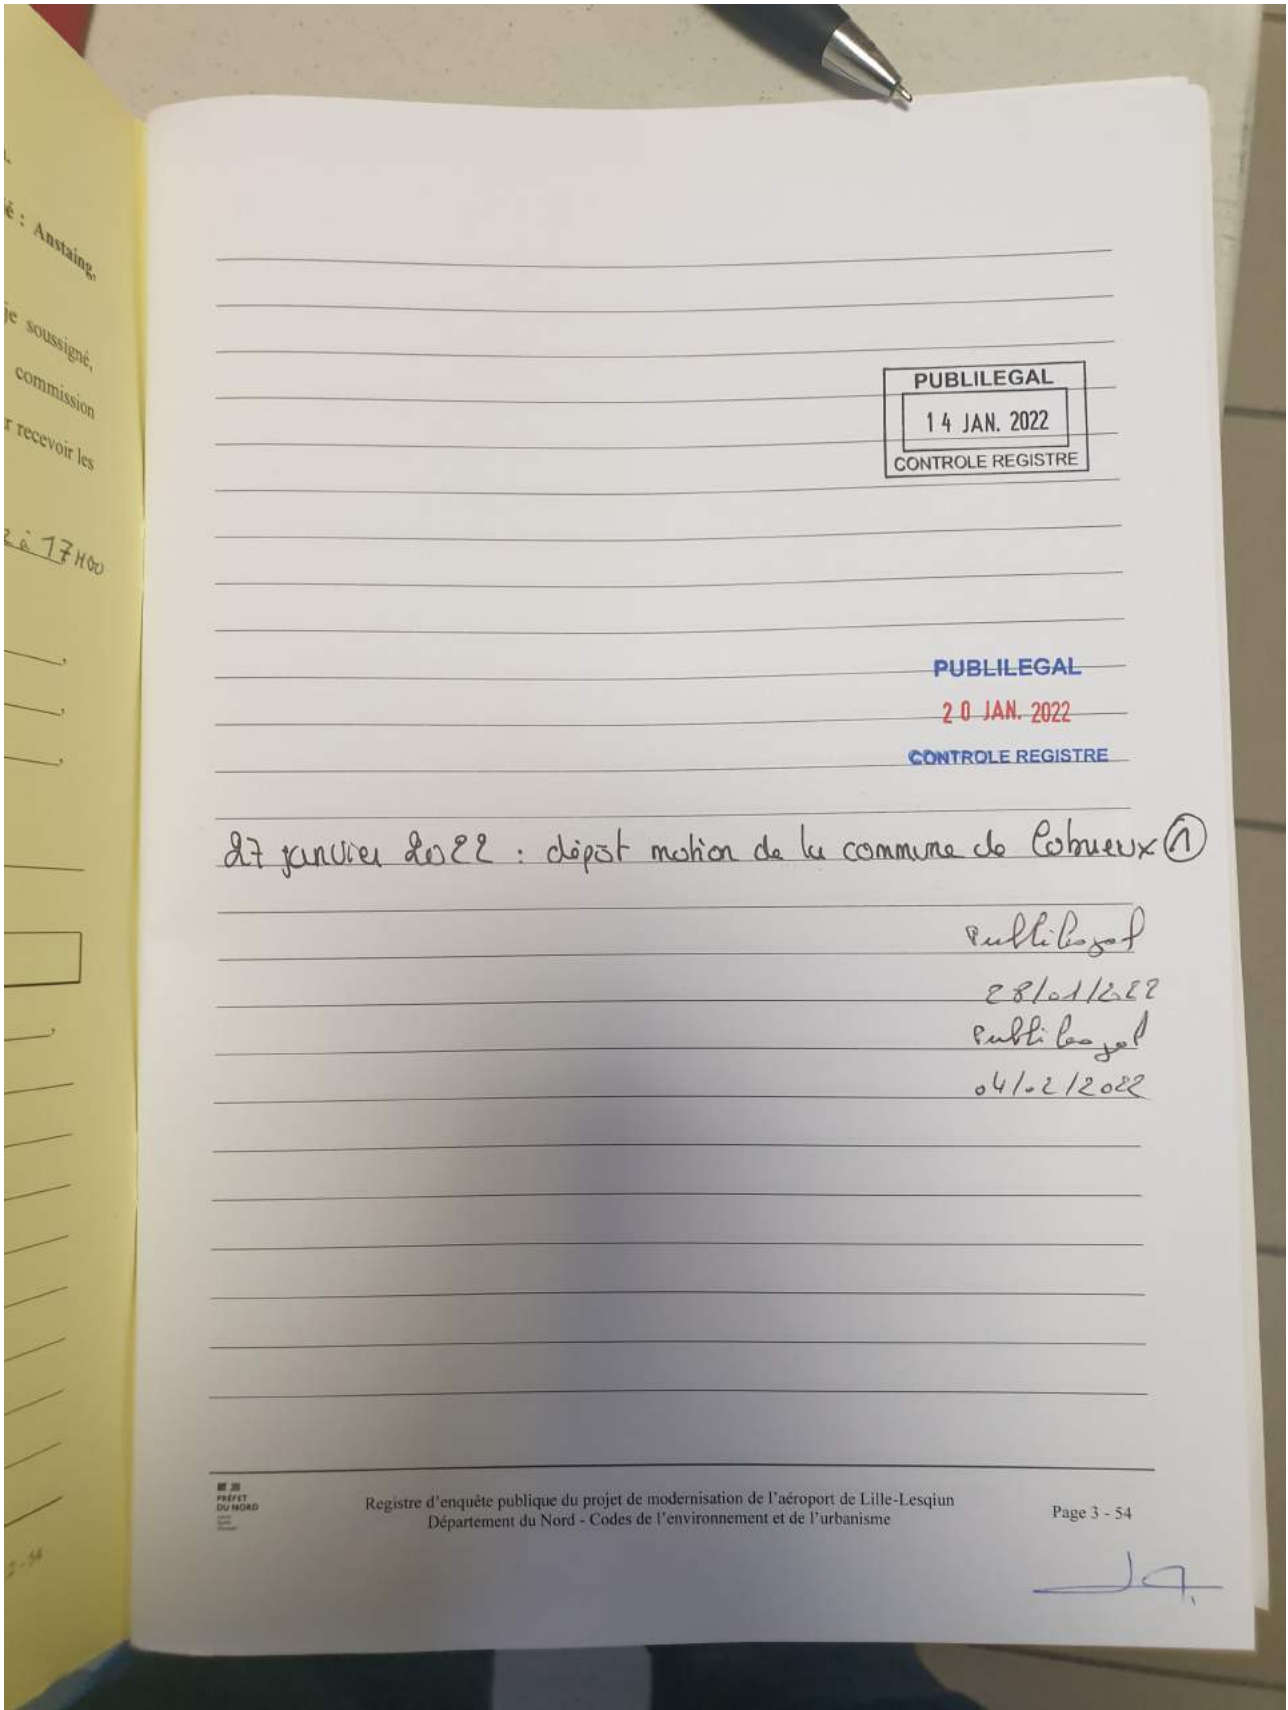 é : Anstaing,
je soussigné,
commission
r recevoir les
à 17H00
PUBLILEGAL
14 JAN. 2022
CONTROLE REGISTRE
PUBLILEGAL
20 JAN. 2022
CONTROLE REGISTRE
27 janvier 2022 : dépôt motion de la commune de Cobrieux 1
Publilegal
28/01/2022
Publilegal
04/02/2022
PRÉFET
DU NORD
Registre d'enquête publique du projet de modernisation de l'aéroport de Lille-Lesqiun
Département du Nord - Codes de l'environnement et de l'urbanisme
Page 3 - 54